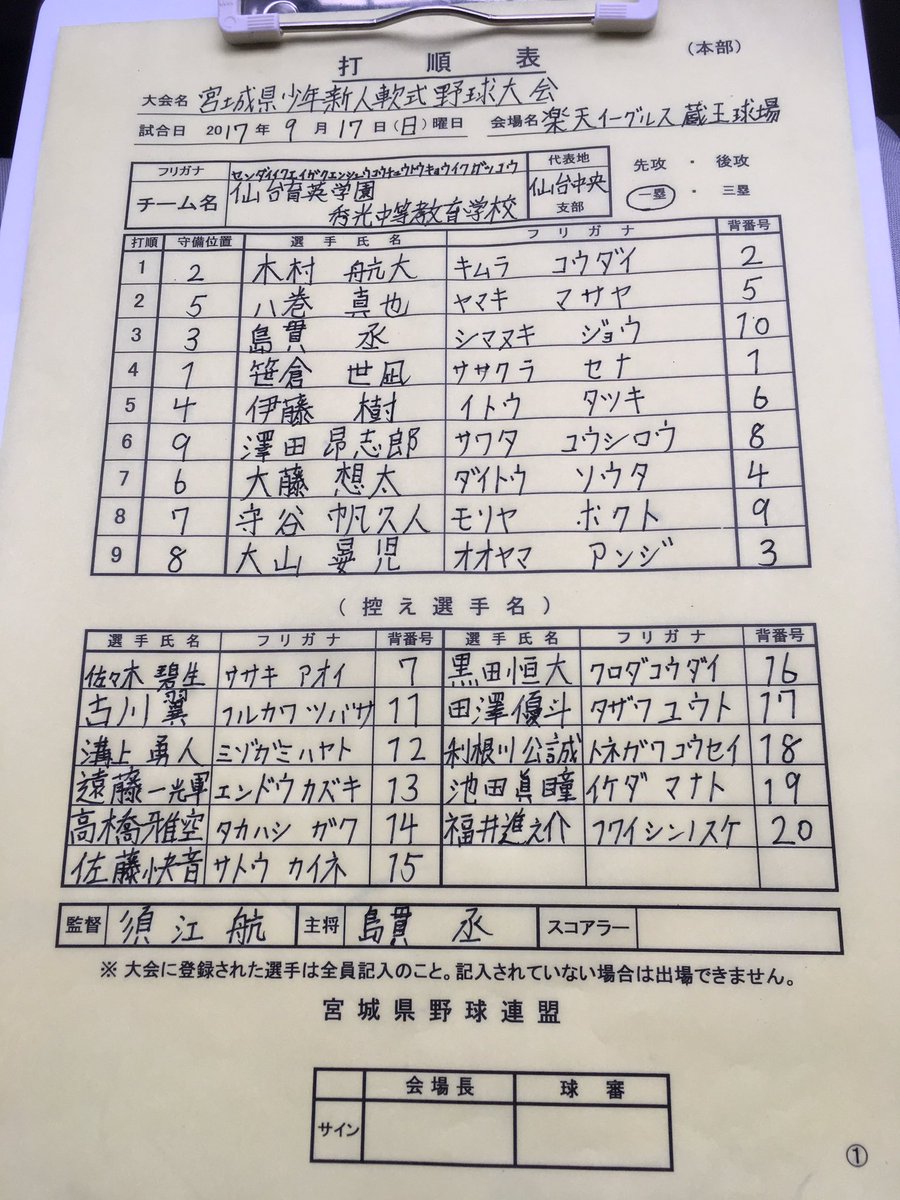 打順表
（本部）
大会名 宮城県少年新人軟式野球大会
試合日 2017年9月17日(日)曜日 会場名 楽天イーグルス蔵王球場
フリガナ センダイイクエイガクエンシュウコウチュウトウキョウイクガッコウ 代表地 先攻・後攻
チーム名 仙台育英学園 仙台中央
秀光中等教育学校 支部 一塁・三塁
打順 守備位置 選手氏名 フリガナ 背番号
1 2 木村 航大 キムラ コウダイ 2
2 5 八巻 真也 ヤマキ マサヤ 5
3 3 島貫 丞 シマヌキ ジョウ 10
4 1 笹倉 世凪 ササクラ セナ 1
5 4 伊藤 樹 イトウ タツキ 6
6 9 澤田 昂志郎 サワタ コウシロウ 8
7 6 大藤 想太 ダイトウ ソウタ 4
8 7 守谷 帆久人 モリヤ ホクト 9
9 8 大山 晏児 オオヤマ アンジ 3
（控え選手名）
選手氏名 フリガナ 背番号 選手氏名 フリガナ 背番号
佐々木 碧生 ササキ アオイ 7 黒田恒大 クロダコウダイ 16
古川翼 フルカワツバサ 11 田澤優斗 タザワユウト 17
溝上勇人 ミゾガミハヤト 12 利根川公誠 トネガワコウセイ 18
遠藤一輝 エンドウカズキ 13 池田真瞳 イケダ マナト 19
高橋雅空 タカハシ ガク 14 福井進之介 フクイシンノスケ 20
佐藤快音 サトウ カイネ 15
監督 須江航 主将 島貫 丞 スコアラー
※大会に登録された選手は全員記入のこと。記入されていない場合は出場できません。
宮城県野球連盟
会場長 球審
サイン
①